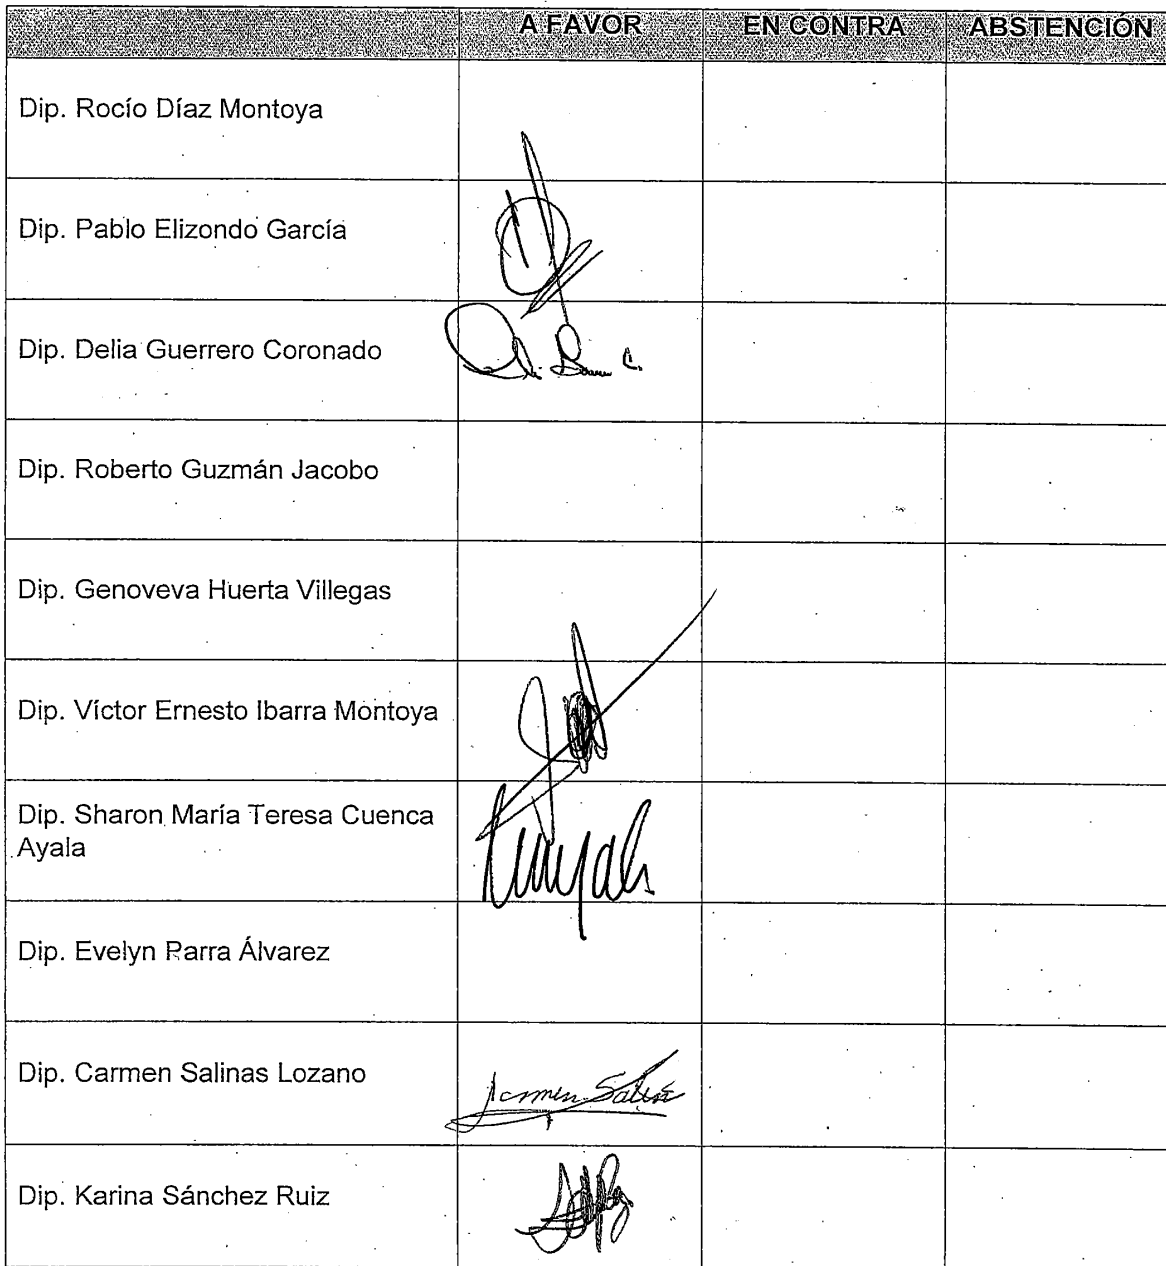 A FAVOR EN CONTRA ABSTENCIÓN
Dip. Rocío Díaz Montoya
Dip. Pablo Elizondo García
Dip. Delia Guerrero Coronado
Dip. Roberto Guzmán Jacobo
Dip. Genoveva Huerta Villegas
Dip. Víctor Ernesto Ibarra Montoya
Dip. Sharon María Teresa Cuenca
Ayala
Dip. Evelyn Parra Álvarez
Dip. Carmen Salinas Lozano
Carmen Salinas
Dip. Karina Sánchez Ruiz